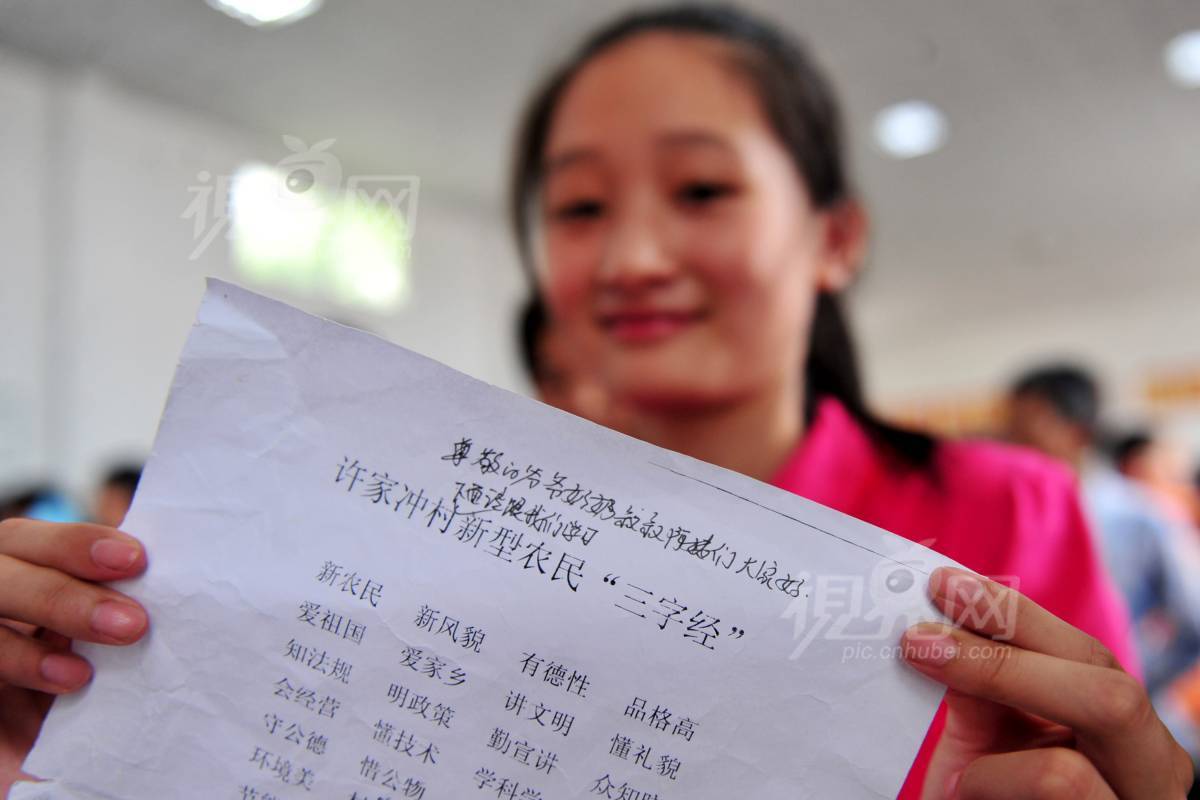 视界网
尊敬的爷爷奶奶叔叔阿姨们大家好.
下面请跟我们学习
许家冲村新型农民“三字经”
新农民 新风貌 有德性 品格高
爱祖国 爱家乡 讲文明 懂礼貌
知法规 明政策 勤宣讲
会经营 懂技术 学科学
守公德 惜公物
环境美
视界网
pic.cnhubei.com